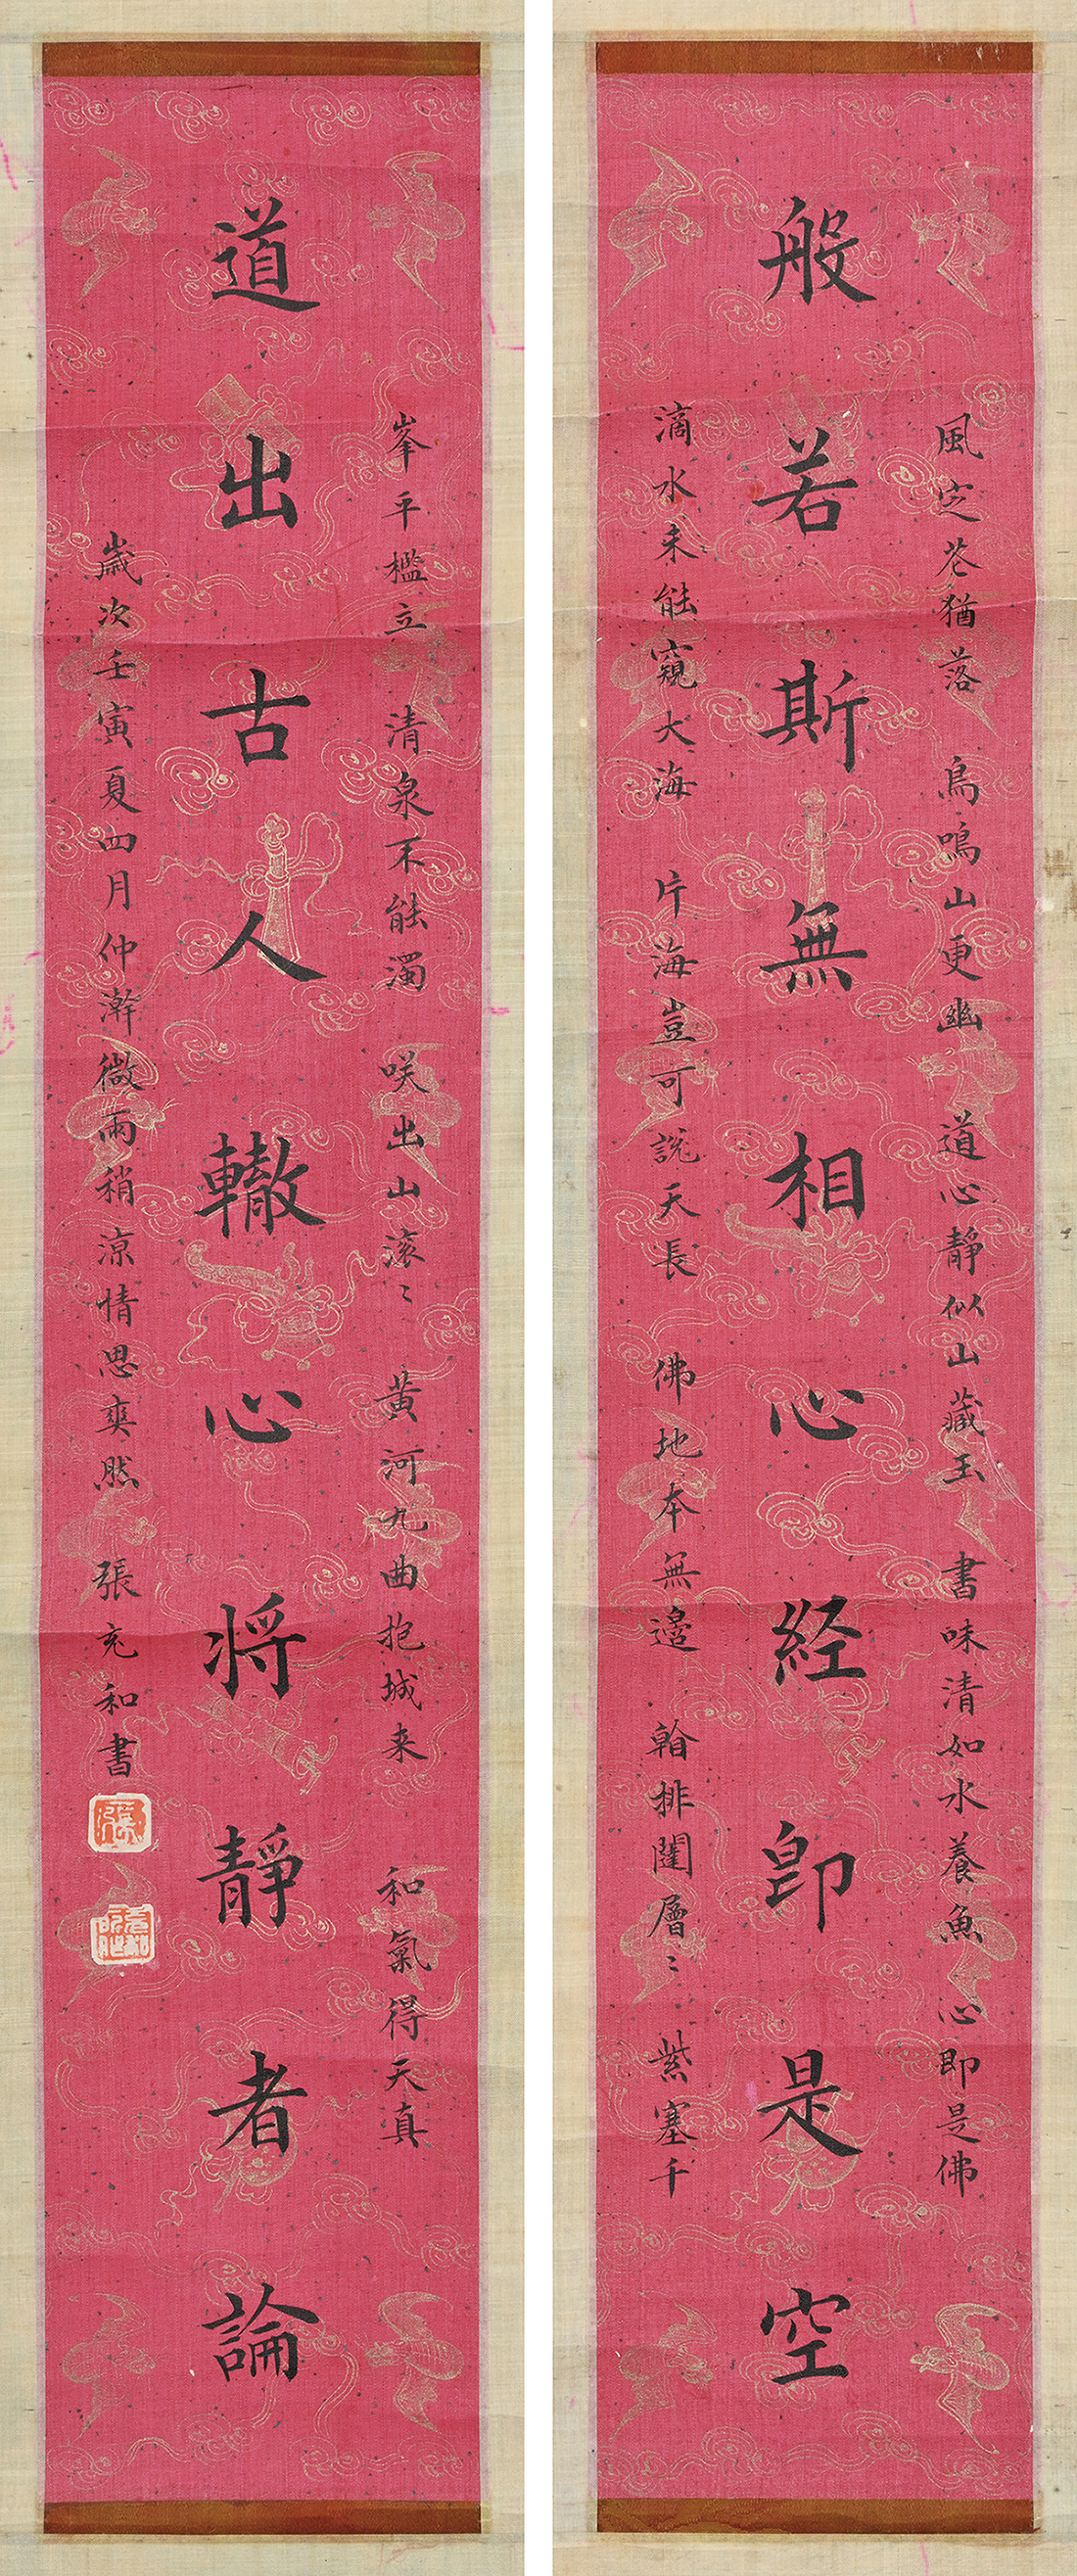 風定花猶落 鳥鳴山更幽 道心靜似山藏玉 書味清如水養魚 心即是佛
般若斯無相心経卽是空
滴水未能窺大海 片海豈可說天長 佛地本無邊 翰排闥層〻 紫塞千
峯平檻立 清泉不能濁 咲出山滚〻 黃河九曲抱城来 和氣得天真
道出古人轍心将靜者論
歲次壬寅夏四月仲澣微雨稍涼情思爽然 張充和書
張